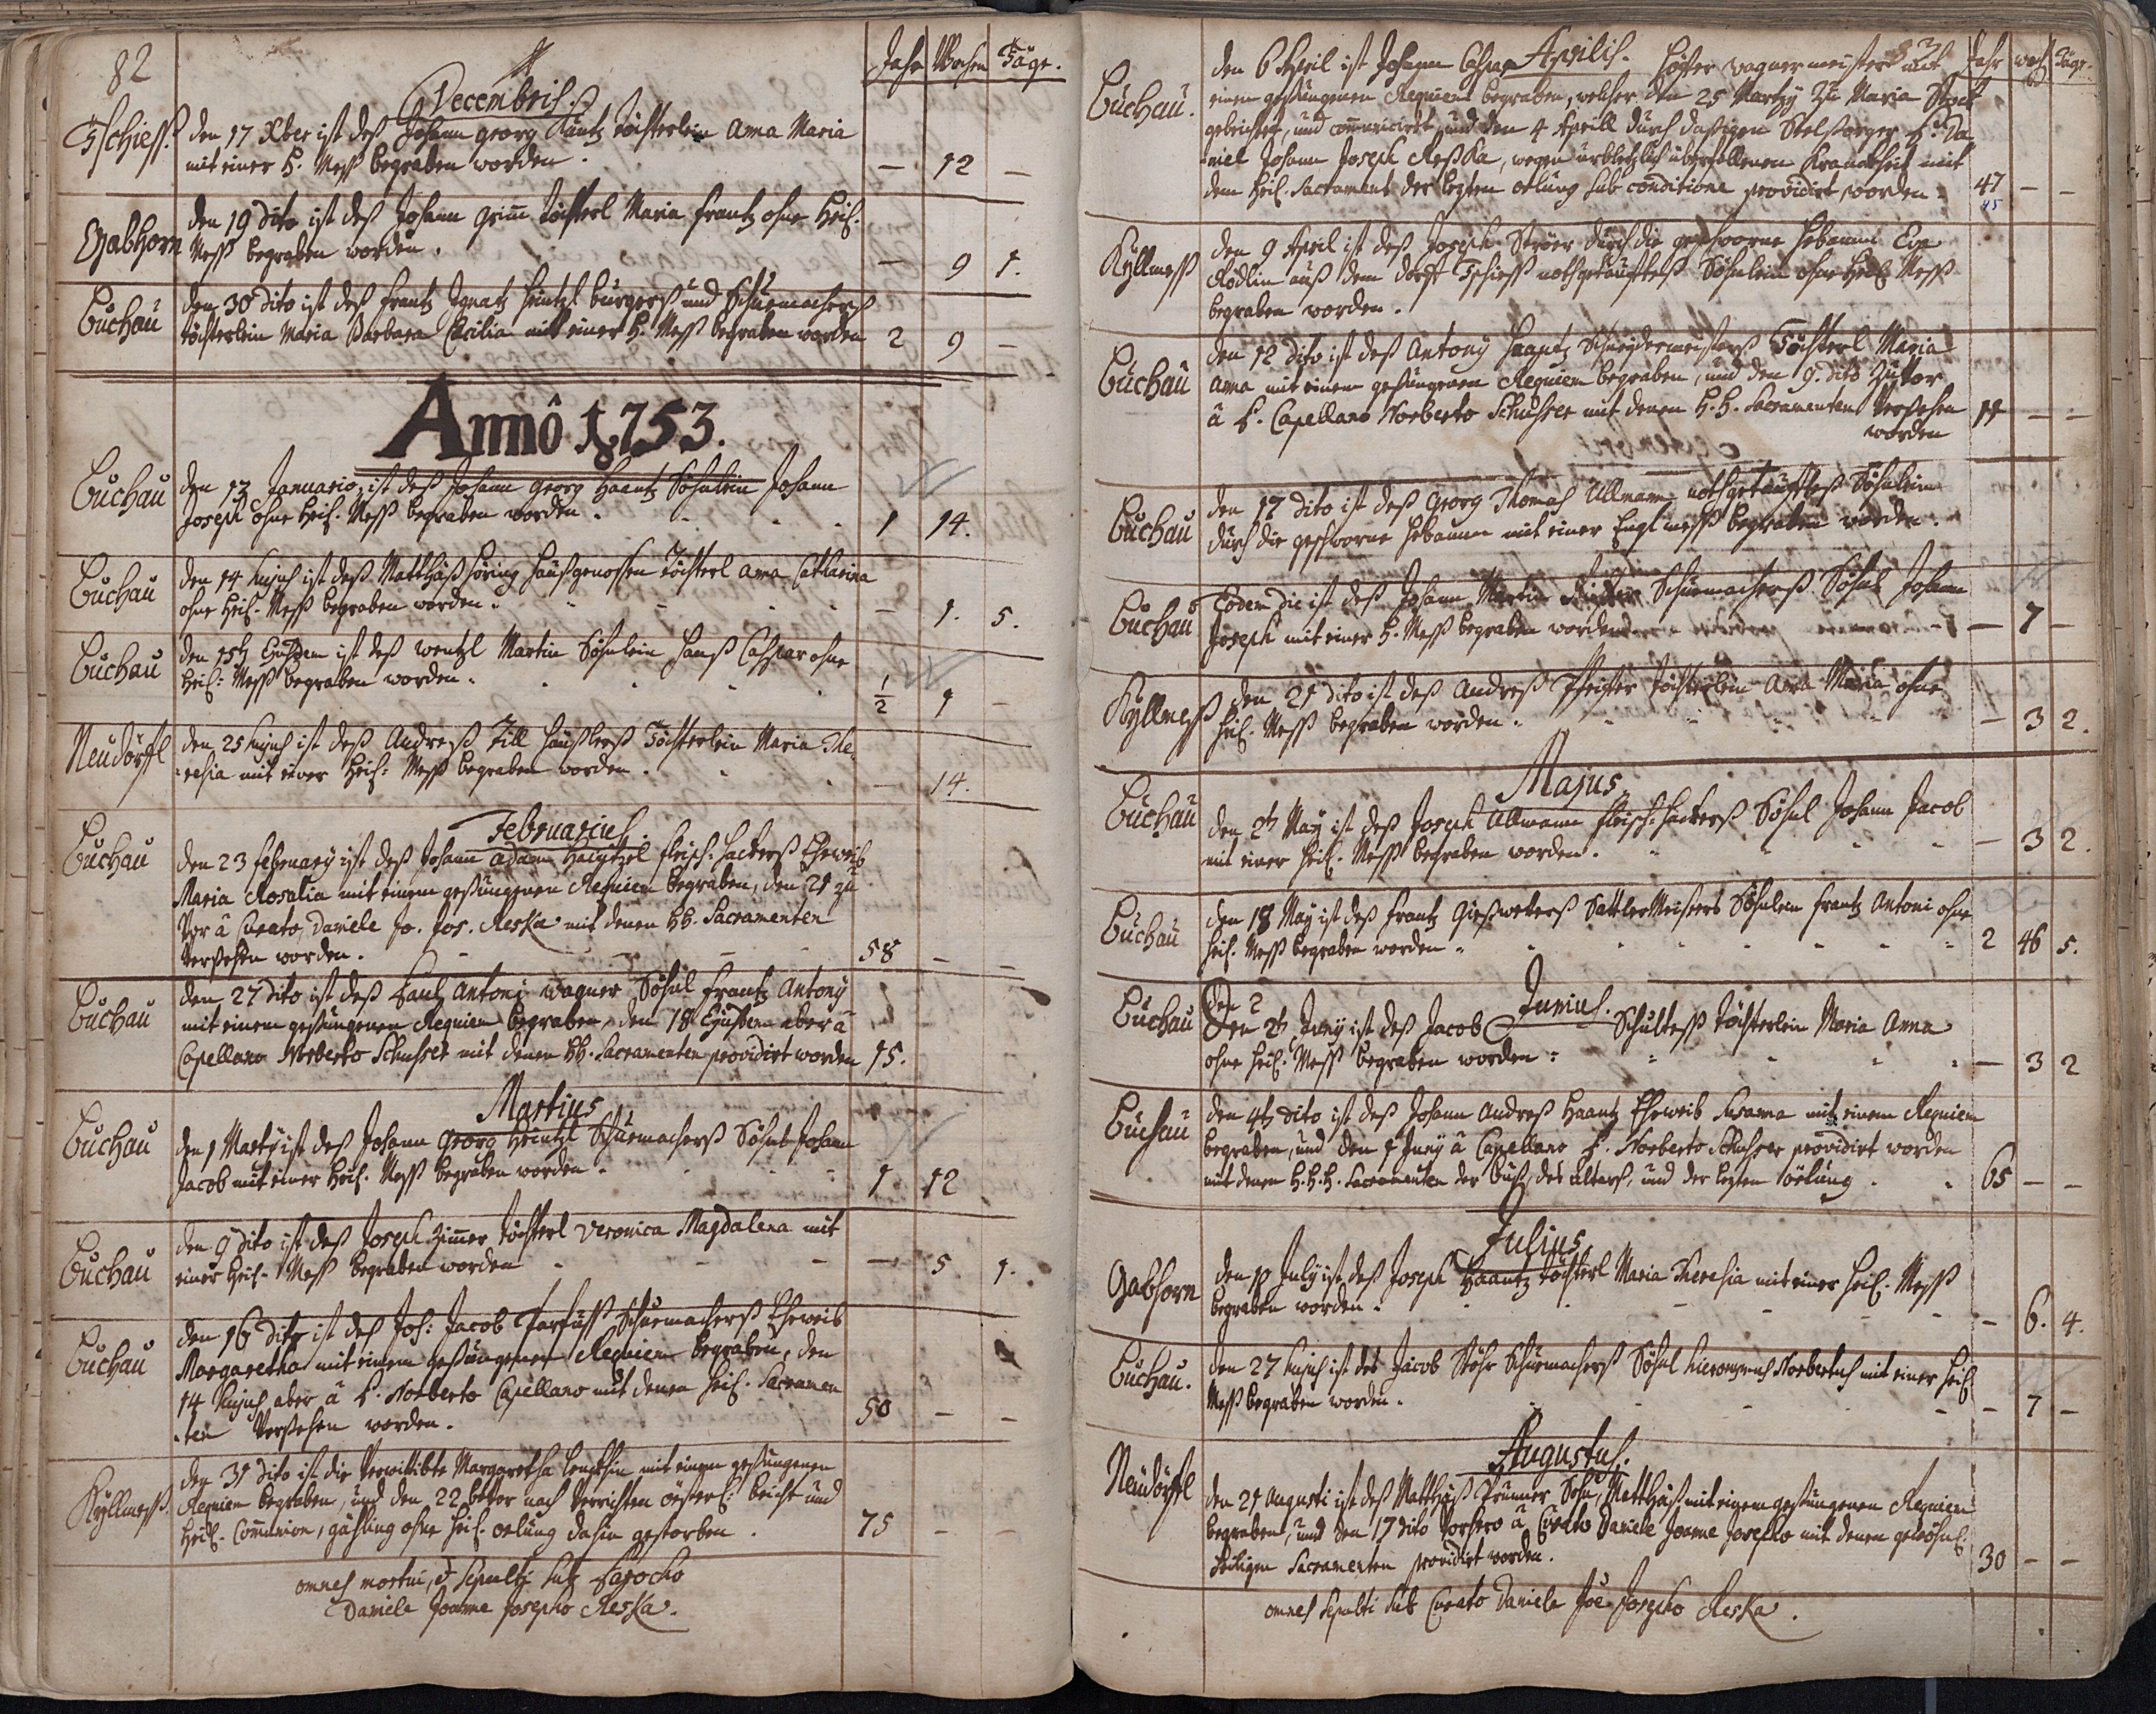 82
Jahr Wochen Täge.
Decembris.
Tschiess. den 17 Xber ist deß Johann Georg Kuntz Töchterlein Anna Maria
mit einer H. Mess begraben worden. — 12 —
Gabhorn den 19 dito ist deß Johann Grim̄ Töchterl Maria Frantz ohne Heil.
Mess begraben worden. — 9 1.
Buchau den 30 dito ist deß Frantz Ignatz Heintzl burgerß und Schuemacherß
töchterlein Maria Barbara Cecilia mit einer H. Mess begraben worden 2 9 —
Annô 1753.
Buchau den 13 Januario, ist deß Johann Georg Haantz Söhnlein Johann
Joseph ohne Heil. Mess begraben worden. 1 14.
Buchau den 14 hujus ist deß Matthäß Höring Haußgenossen Töchterl Anna Catharina
ohne Heil. Mess begraben worden. — 1. 5.
Buchau den 15t Ejusdem ist deß Wentzl Martin Söhnlein Hanß Caspar ohne
Heil: Mess begraben worden. ½ 9 —
Neudörffl den 25 hujus ist deß Andreß Till Häußlerß Töchterlein Maria The-
resia mit einer Heil: Mess begraben worden. — 14.
Februarius.
Buchau den 23 February ist deß Johann Adam fleisch-hackerß Eheweib
Maria Rosalia mit einem gesungenen Requiem begraben, den 21 zu
Vor â Curato, Daniele Jo. Jos. Reska mit denen hh. Sacramenten
Versehen worden. 58 — —
Buchau den 27 dito ist deß Antoni Wagner Söhnl Frantz Antony
mit einem gesungenen Requiem begraben, den 18 Ejusdem aber â
Capellano Norberto Schusser mit denen hh. Sacramenten providirt worden 15.
Martius
Buchau den 1 Martÿ ist deß Johann Georg Heintzl Schuemacherß Söhnl Johann
Jacob mit einer Heil. Mess begraben worden. 1 12
Buchau den 9 dito ist deß Joseph Zimmer Töchterl Veronica Magdalena mit
einer Heil. Mess begraben worden — 5 1.
Buchau den 16 dito ist deß Joh: Jacob Parfuss Schuemacherß Eheweib
Margaretha mit einem gesungenen Requiem begraben, den
14 hujus aber â P. Norberto Capellano mit denen Heil. Sacramen
ten Versehen worden. 50 — —
Kyllmess. den 31 dito ist die Verwittibte Margaretha mit einem gesungenen
Requiem begraben, und den 22 bevor nach Verrichten österl: beicht und
Heil. Com̄union, gähling ohne Heil. oelung dahin gestorben. 75 — —
omnes mortui, et sepulti sub Parocho
Daniele Joanne Josepho Reska.
Aprilis. Jahr woch Täge.
Buchau. den 6 April ist Johann Caspar Höfter Wagnermeister mit
einem gesungenen Requiem begraben, welcher den 25 Martÿ zu Maria Stock
gebeichtet, und com̄unicirt und den 4 Aprill durch dasigen Seelsorger P. Da-
niel Johann Joseph Reska, wegen überfallenen Kranckheit mit
dem Heil. Sacrament der lezten oelung sub conditione providirt worden. 47 — —
45
Kyllmess den 9 April ist deß Joseph Ströer durch die geschworne Hebamm Eva
Rödlin auß dem dorff Tschiess nothgetaufftes Söhnlein ohne Heil Mess
begraben worden.
Buchau den 12 dito ist deß Antonÿ Haantz Schneydermeisterß Töchterl Maria
Anna mit einem gesungenen Requiem begraben, und den 9. dito zuvor
â P. Capellano Norberto Schusser mit denen H.H. Sacramenten Versehen 11 — —
worden
Buchau den 17 dito ist deß Georg Thomas Ullmann nothgetaufftes Söhnlein
durch die geschworne Hebamm mit einer Englmess begraben worden.
Buchau Eodem die ist deß Johann Martin Schuemacherß Söhnl Johann
Joseph mit einer H. Mess begraben worden — 7 —
Kyllmess den 21 dito ist deß Andreß Pfeiffer Töchterlein Anna Maria ohne
Heil. Mess begraben worden. — 3 2.
Majus
Buchau den 2t May ist deß Joseph Ullmann fleisch-hackerß Söhnl Johann Jacob
mit einer Heil. Mess begraben worden. — 3 2.
Buchau den 18 May ist deß Frantz Sattler Meisters Söhnlein Frantz Antoni ohne
Heil. Mess begraben worden. 2 46 5.
Junius.
Buchau den 2
Den 2t Juny ist deß Jacob Schulteß Töchterlein Maria Anna
ohne Heil. Mess begraben worden. — 3 2
Buchau den 4t dito ist deß Johann Andreß Haantz Eheweib Susanna mit einem Requiem
begraben, und den 1 Juny â Capellano P. Norberto Schusser providirt worden
mit denen H.H.H. Sacramenten der buß, des altars, und der lezten öelung. 65 — —
Julius
Gabhorn den 10 July ist deß Joseph Haantz Töchterl Maria Theresia mit einer Heil. Mess
begraben worden. — 6. 4.
Buchau. den 27 hujus ist des Jacob Stöhr Schuemacherß Söhnl Hieronymus Norbertus mit einer Heil
Mess begraben worden. — 7 —
Augustus.
Neudörffl den 21 Augusti ist deß Matthäß Prunner Sohn, Matthäß mit einem gesungenen Requiem
begraben, und den 17 dito vorhero â Curato Daniele Joanne Josepho mit denen gewöhnl.
heiligen Sacramenten providirt worden. 30 — —
omnes sepulti sub Curato Daniele Joe Josepho Reska.